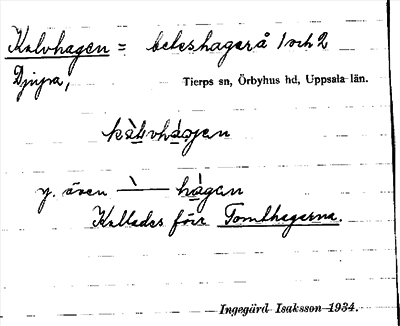 Kalvhagen = beteshagar å 1 och 2
Djupa,
Tierps sn, Örbyhus hd, Uppsala län.
kàlvhàgen
y. även ˋ — hàgan
Kallades förr Tomthagarna.
Ingegärd Isaksson 1934.